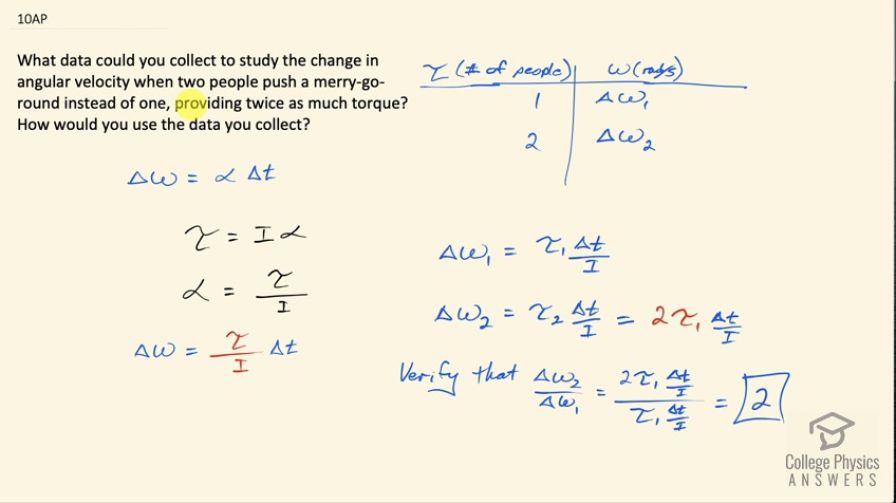 10AP
What data could you collect to study the change in
angular velocity when two people push a merry-go-
round instead of one, providing twice as much torque?
How would you use the data you collect?
τ (# of people) ω (rad/s)
1 Δω₁
2 Δω₂
Δω = α Δt
τ = Iα
α = τ/I
Δω = τ/I Δt
Δω₁ = τ₁ Δt/I
Δω₂ = τ₂ Δt/I = 2τ₁ Δt/I
Verify that Δω₂/Δω₁ = 2τ₁ Δt/I / τ₁ Δt/I = 2
College Physics
ANSWERS